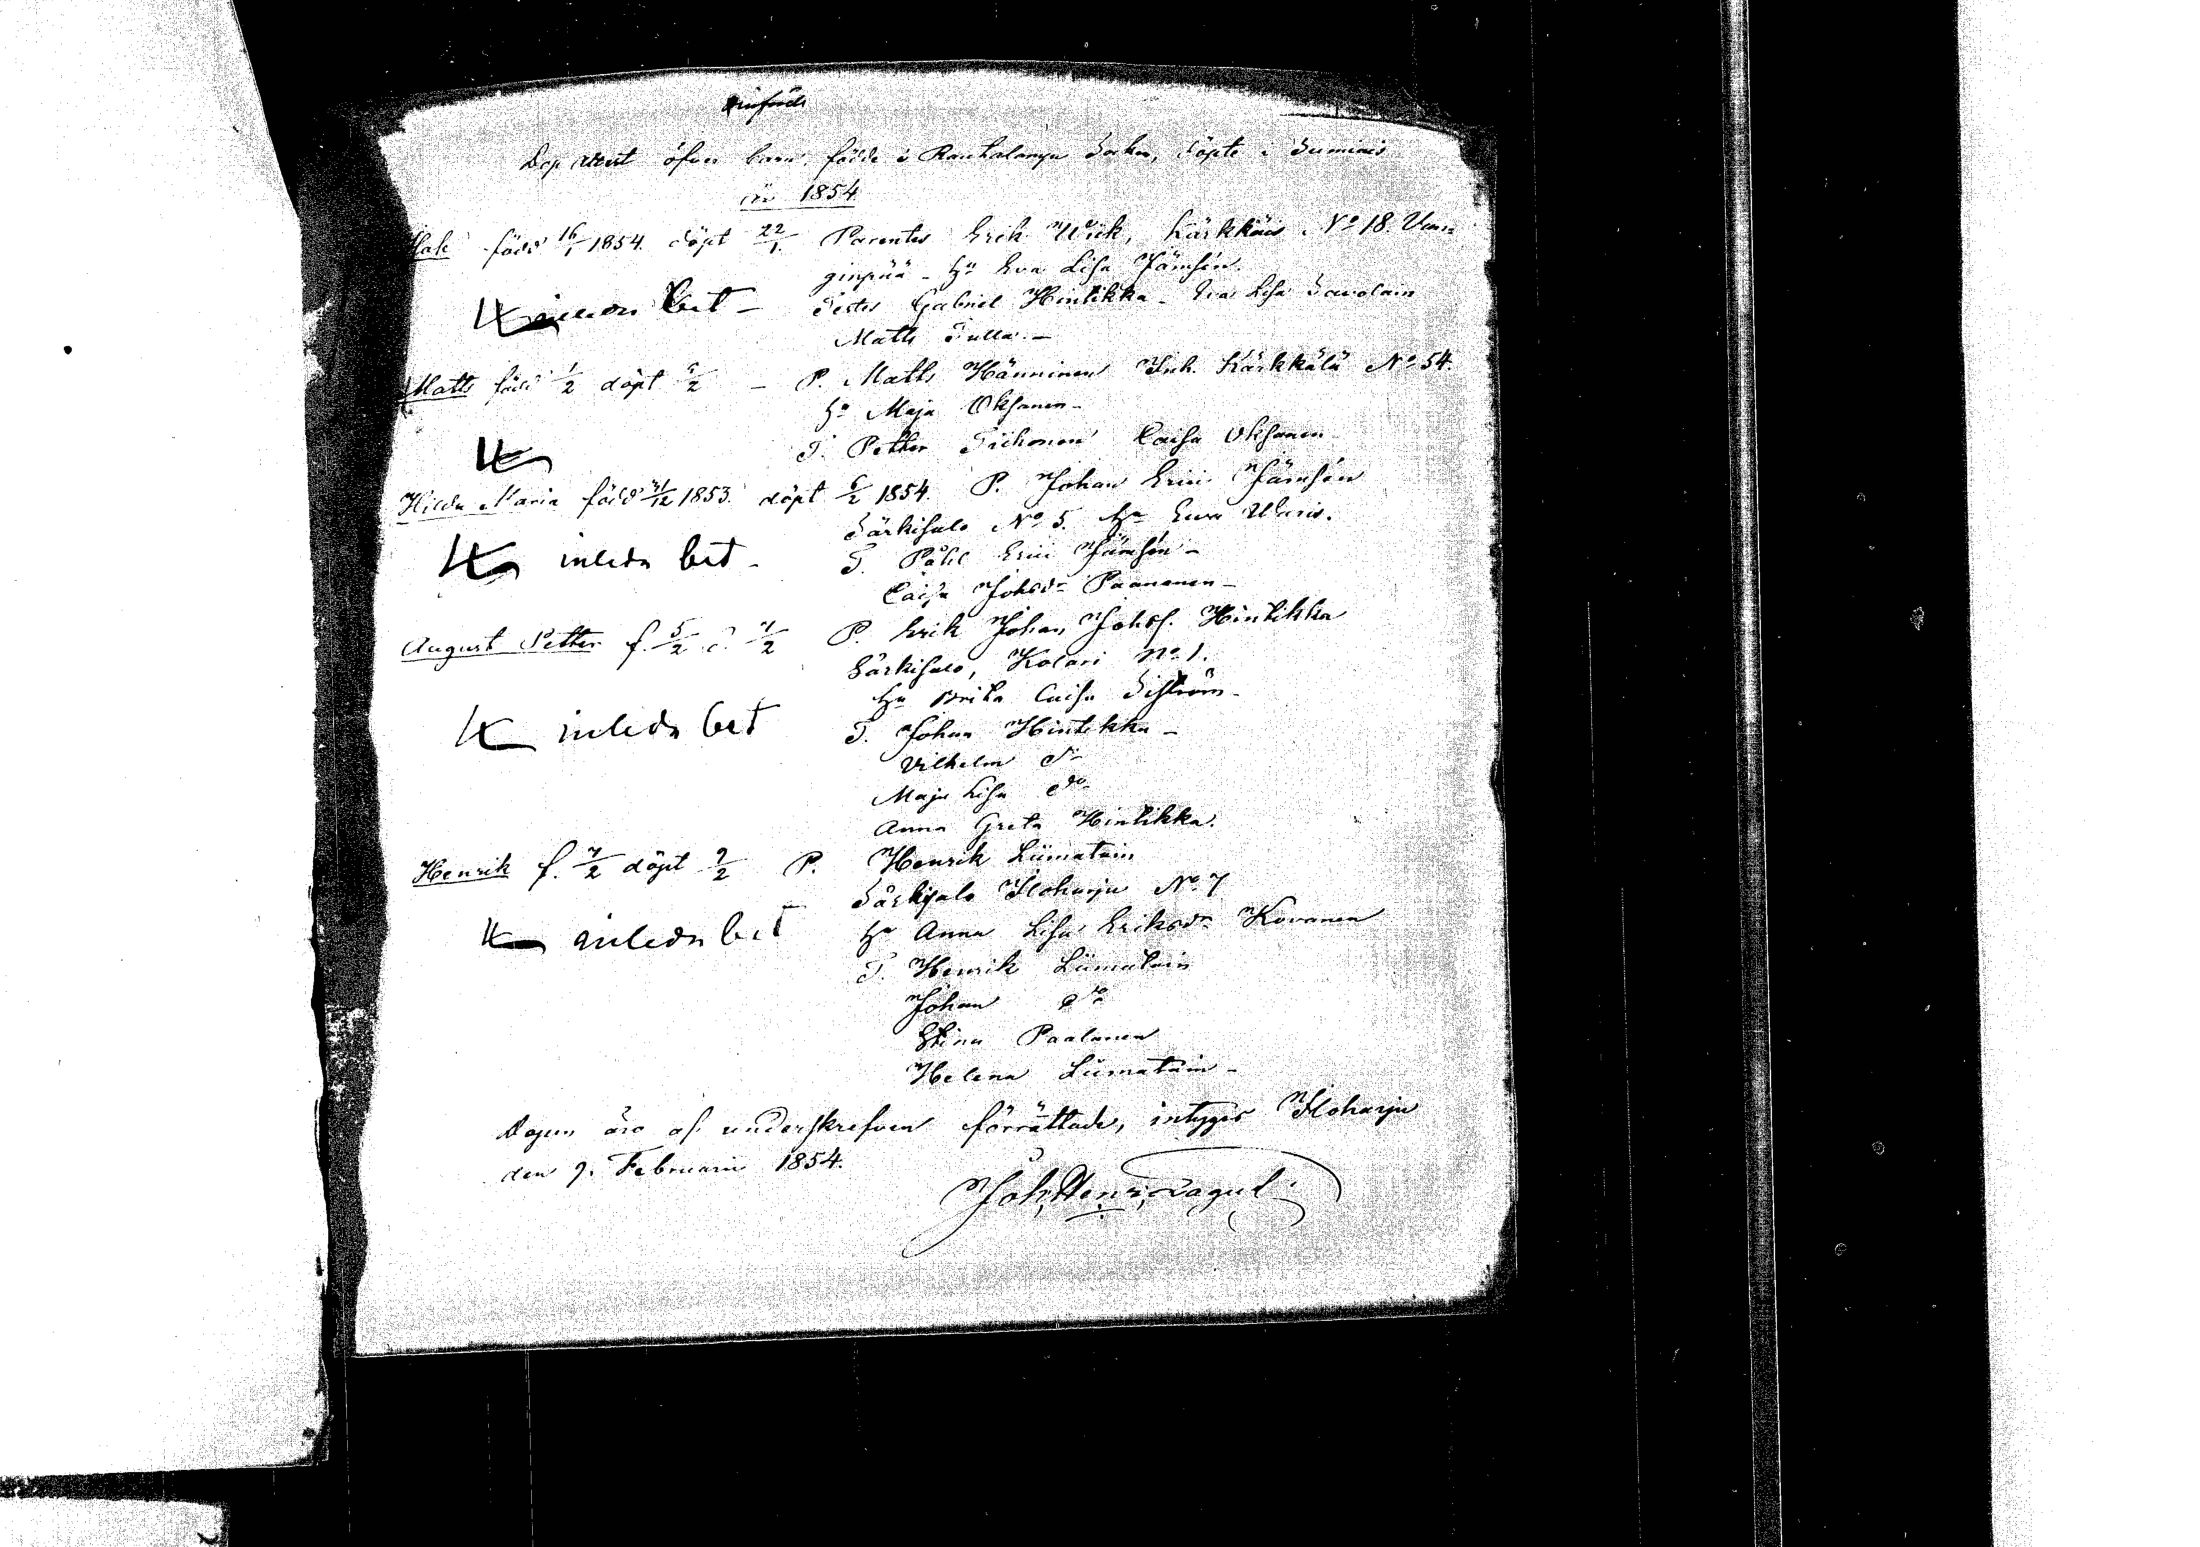 införde
Dop attest öfver barn, födde i Rautalampi Socken, döpte i Sumiais
år 1854
född 16/1 1854. döpt 22/1. Parentes Erik Wick, Kärkkäis No 18.
ginpää - Hu Eva Lisa Jämsén.
inledn bet - Testes Gabriel Hintikka - Eva Lisa Savolain
Matts Tulla. -
Matts född 1/2 döpt 5/2 - P. Matts Hänninen Inh. Kärkkälä No 54.
Hu Maja Oksanen -
T. Petter Tichonen Caisa Oksanen
Hilda Maria född 31/12 1853. döpt 6/2 1854. P. Johan Erici Jämsén
Särkisalo No 5. Hu Eva
inledn bet - T. Påhl Erici Jämsén -
Caisa Johsdr Paananen -
August Petter f. 5/2 d. 7/2 P. Erik Johan Johss. Hintikka
Särkisalo, Kolari No 1.
Hu Brita Caisa
inledn bet T. Johan Hintikka -
Vilhelm do
Maja Lisa do
Anna Greta Hintikka.
Henrik f. 7/2 döpt 9/2 P. Henrik Liimatain
Särkisalo Iloharju No 7
inledn bet - Hu Anna Lisa Eriksdr Kovanen
T. Henrik Liimatain
Johan do
Stina Paalanen
Helena Liimatain -
Dopen äro af underskrefven förrättade, intygas Iloharju
den 9. Februarii 1854.
Joh. Henr.